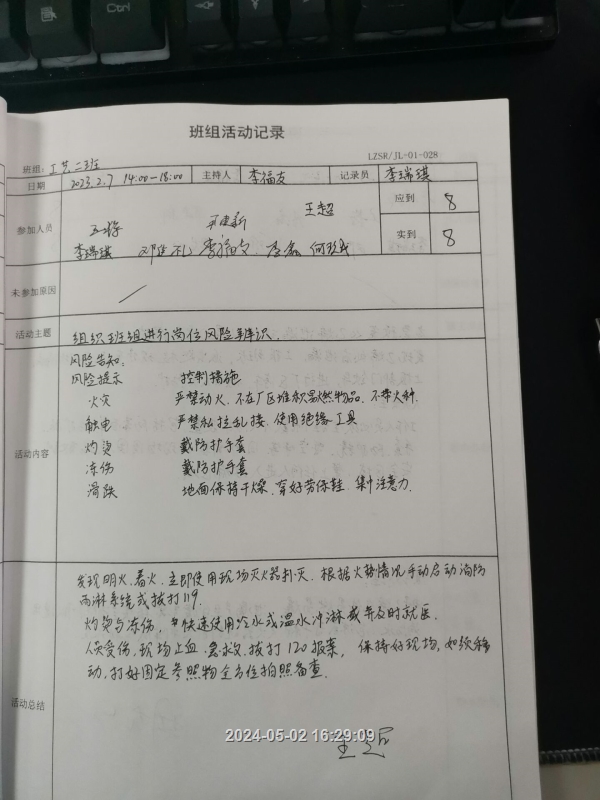 Ctrl
班组活动记录
LZSR/JL-01-028
班组：工艺二班
日期 2023.2.7 14:00-18:00 主持人 李福友 记录员 李瑞琪
参加人员 王超 应到 8
李瑞琪 实到 8
未参加原因
活动主题 组织班组进行岗位风险再辨识.
活动内容 风险告知:
风险提示 控制措施
火灾 严禁动火、不在厂区堆积易燃物品、不带火种.
触电 严禁私拉乱接、使用绝缘工具
灼烫 戴防护手套
冻伤 戴防护手套
滑跌 地面保持干燥、穿好劳保鞋、集中注意力.
活动总结 发现明火、着火、立即使用现场灭火器扑灭、根据火势情况手动启动消防
雨淋系统或拨打119.
灼烫与冻伤、快速使用冷水或温水冲淋 并及时就医.
人员受伤、现场止血 急救、拨打120报案, 保持好现场,如须移
动、打好固定参照物全方位拍照备查.
2024-05-02 16:29:09